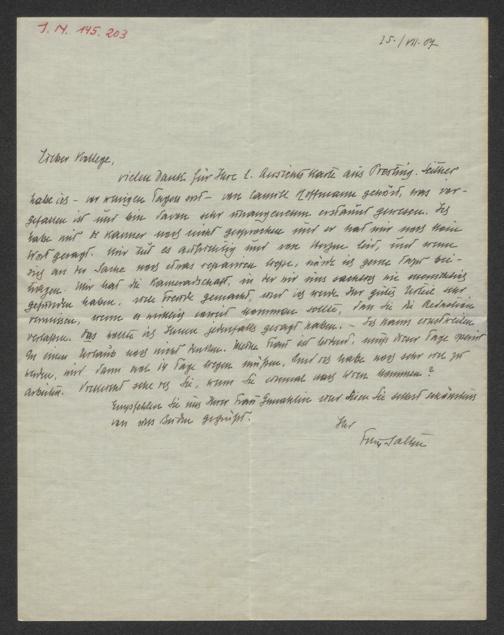 I. N. 145.203
25./VII.07
Lieber Kollege,
vielen Dank für Ihre l. Ansichtskarte aus Seither
habe ich – vor wenigen Tagen erst – von Camill Hoffmann gehört, was vor-
gefallen ist und bin davon sehr unangenehm erstaunt gewesen. Ich
habe mit K noch nicht gesprochen und er hat mir noch kein
Wort gesagt. Mir tut es aufrichtig und von Herzen leid, und wenn
sich an der Sache noch etwas reparieren ließe, würde ich gerne dazu bei-
tragen. Mir hat die Kameradschaft, in der wir uns
gefunden haben, viel Freude gemacht, und ich werde Ihr gutes
vermissen, wenn es wirklich soweit kommen sollte, dass Sie die Redaktion
verlassen. Das wollte ich Ihnen jedenfalls gesagt haben. – Ich kann einstweilen
an einen Urlaub noch nicht denken. Meine Frau ist muss Tage
und dann noch 14 Tage liegen müssen, und ich habe noch sehr viel zu
arbeiten. Vielleicht sehe ich Sie, wenn Sie einmal nach Wien kommen?
Empfehlen Sie mich Ihrer Frau Gemahlin und seien Sie selbst
von uns Beiden gegrüßt.
Ihr
Felix Salten